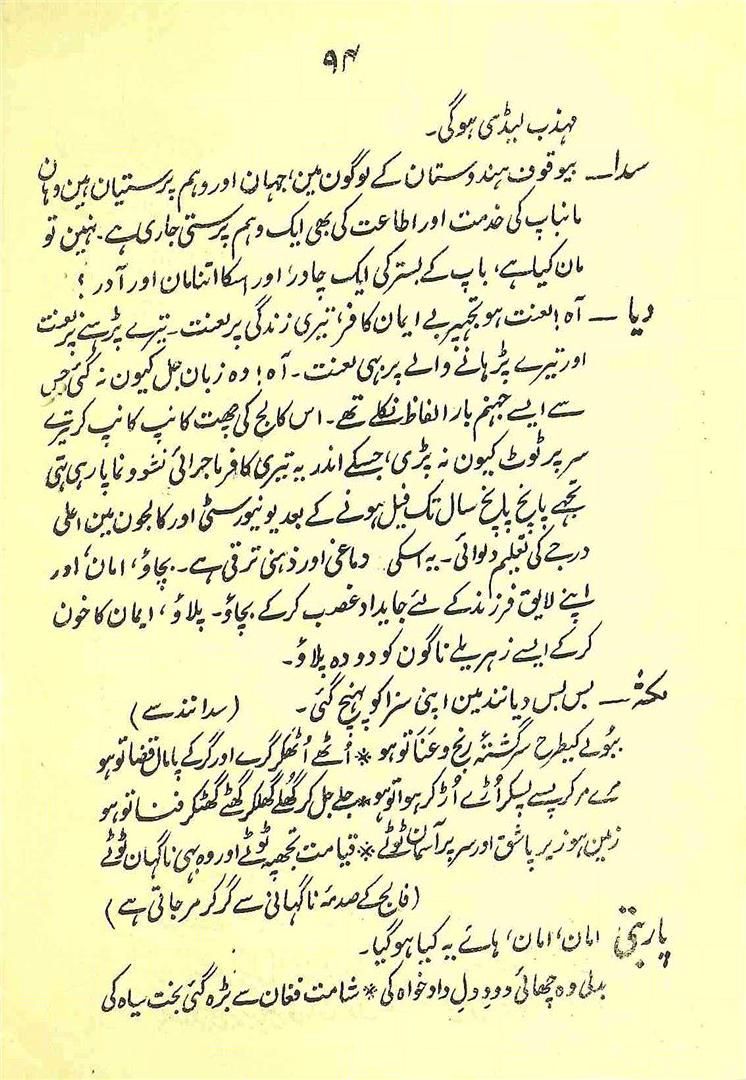 ۹۴
مہذب لیڈی ہوگی۔
سدا۔ بیوقوف ہندوستان کے لوگون مین، جہان اور وہم پرستیان ہین وہان
مانباپ کی خدمت اور اطاعت کی بھی ایک وہم پرستی جاری ہے۔ نہین تو
مان کیا ہے، باپ کے بستر کی ایک چادر، اور اسکا اتنا مان اور آدر؟
دیا۔ آہ! لعنت ہو تجھپر بے ایمان کافر، تیری زندگی پر لعنت۔ تیرے پڑہنے پر لعنت
اور تیرے پڑہانے والے پر بہی لعنت۔ آہ! وہ زبان جل کیون نہ گئی جس
سے ایسے جہنم بار الفاظ نکلے تھے۔ اس کالج کی چھت کانپ کانپ کر تیرے
سر پر ٹوٹ کیون نہ پڑی، جسکے اندر یہ تیری کافر ماجرائی نشو و نما پا رہی تہی
تجہے پانچ پانچ سال تک فیل ہونے کے بعد یونیورسٹی اور کالجون مین اعلی
درجے کی تعلیم دلوائی۔ یہ اسکی دماغی اور ذہنی ترقی ہے۔ بچاؤ، امان، اور
اپنے لایق فرزند کے لئے جایداد غصب کر کے بچاؤ۔ پلاؤ، ایمان کا خون
کر کے ایسے زہریلے ناگون کو دودہ پلاؤ۔
بس بس دیانند مین اپنی سزا کو پہنچ گئی۔ (سدانند سے)
بپوئے کیطرح سرگشتۂ رنج و عَنا تو ہو * اُٹھے اُٹھکر گرے اور گر کے پامالِ قضا تو ہو
مرے مر کر پسے پسکر اُڑے اُڑ کر ہوا تو ہو * جلے جل کر گُھلے گُھلکر گھٹے گھٹکر فنا تو ہو
زمین ہو زیر پا شق اور سر پر آسمان ٹوٹے * قیامت تجھپہ ٹوٹے اور وہ بہی ناگہان ٹوٹے
(فالج کے صدمۂ ناگہانی سے گر کر مر جاتی ہے)
پاربتی امان، امان، ہائے یہ کیا ہو گیا۔
بدلی وہ چھائی دودِ دلِ داد خواہ کی * شامت فغان سے بڑہ گئی بخت سیاہ کی